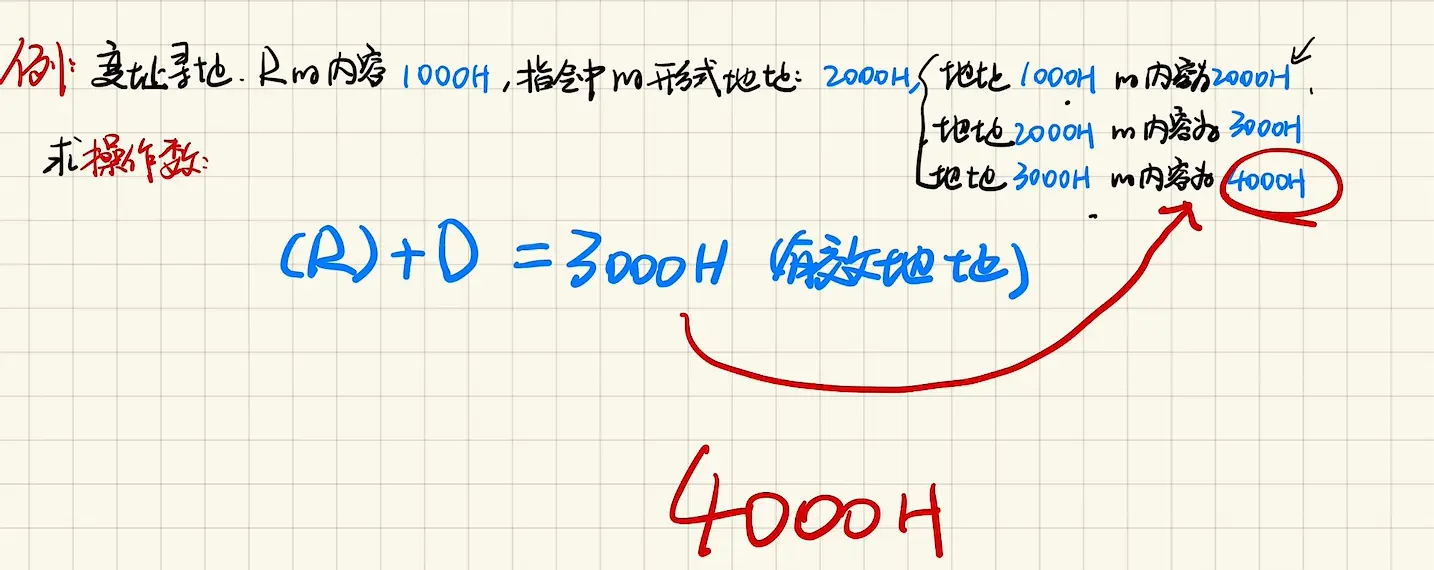 例: 变址寻址. R的内容 1000H, 指令中的形式地址: 2000H, { 地址 1000H 的内容为2000H.
地址 2000H 的内容为 3000H
地址 3000H 的内容为 4000H
求操作数:
(R)+D = 3000H (有效地址)
4000H